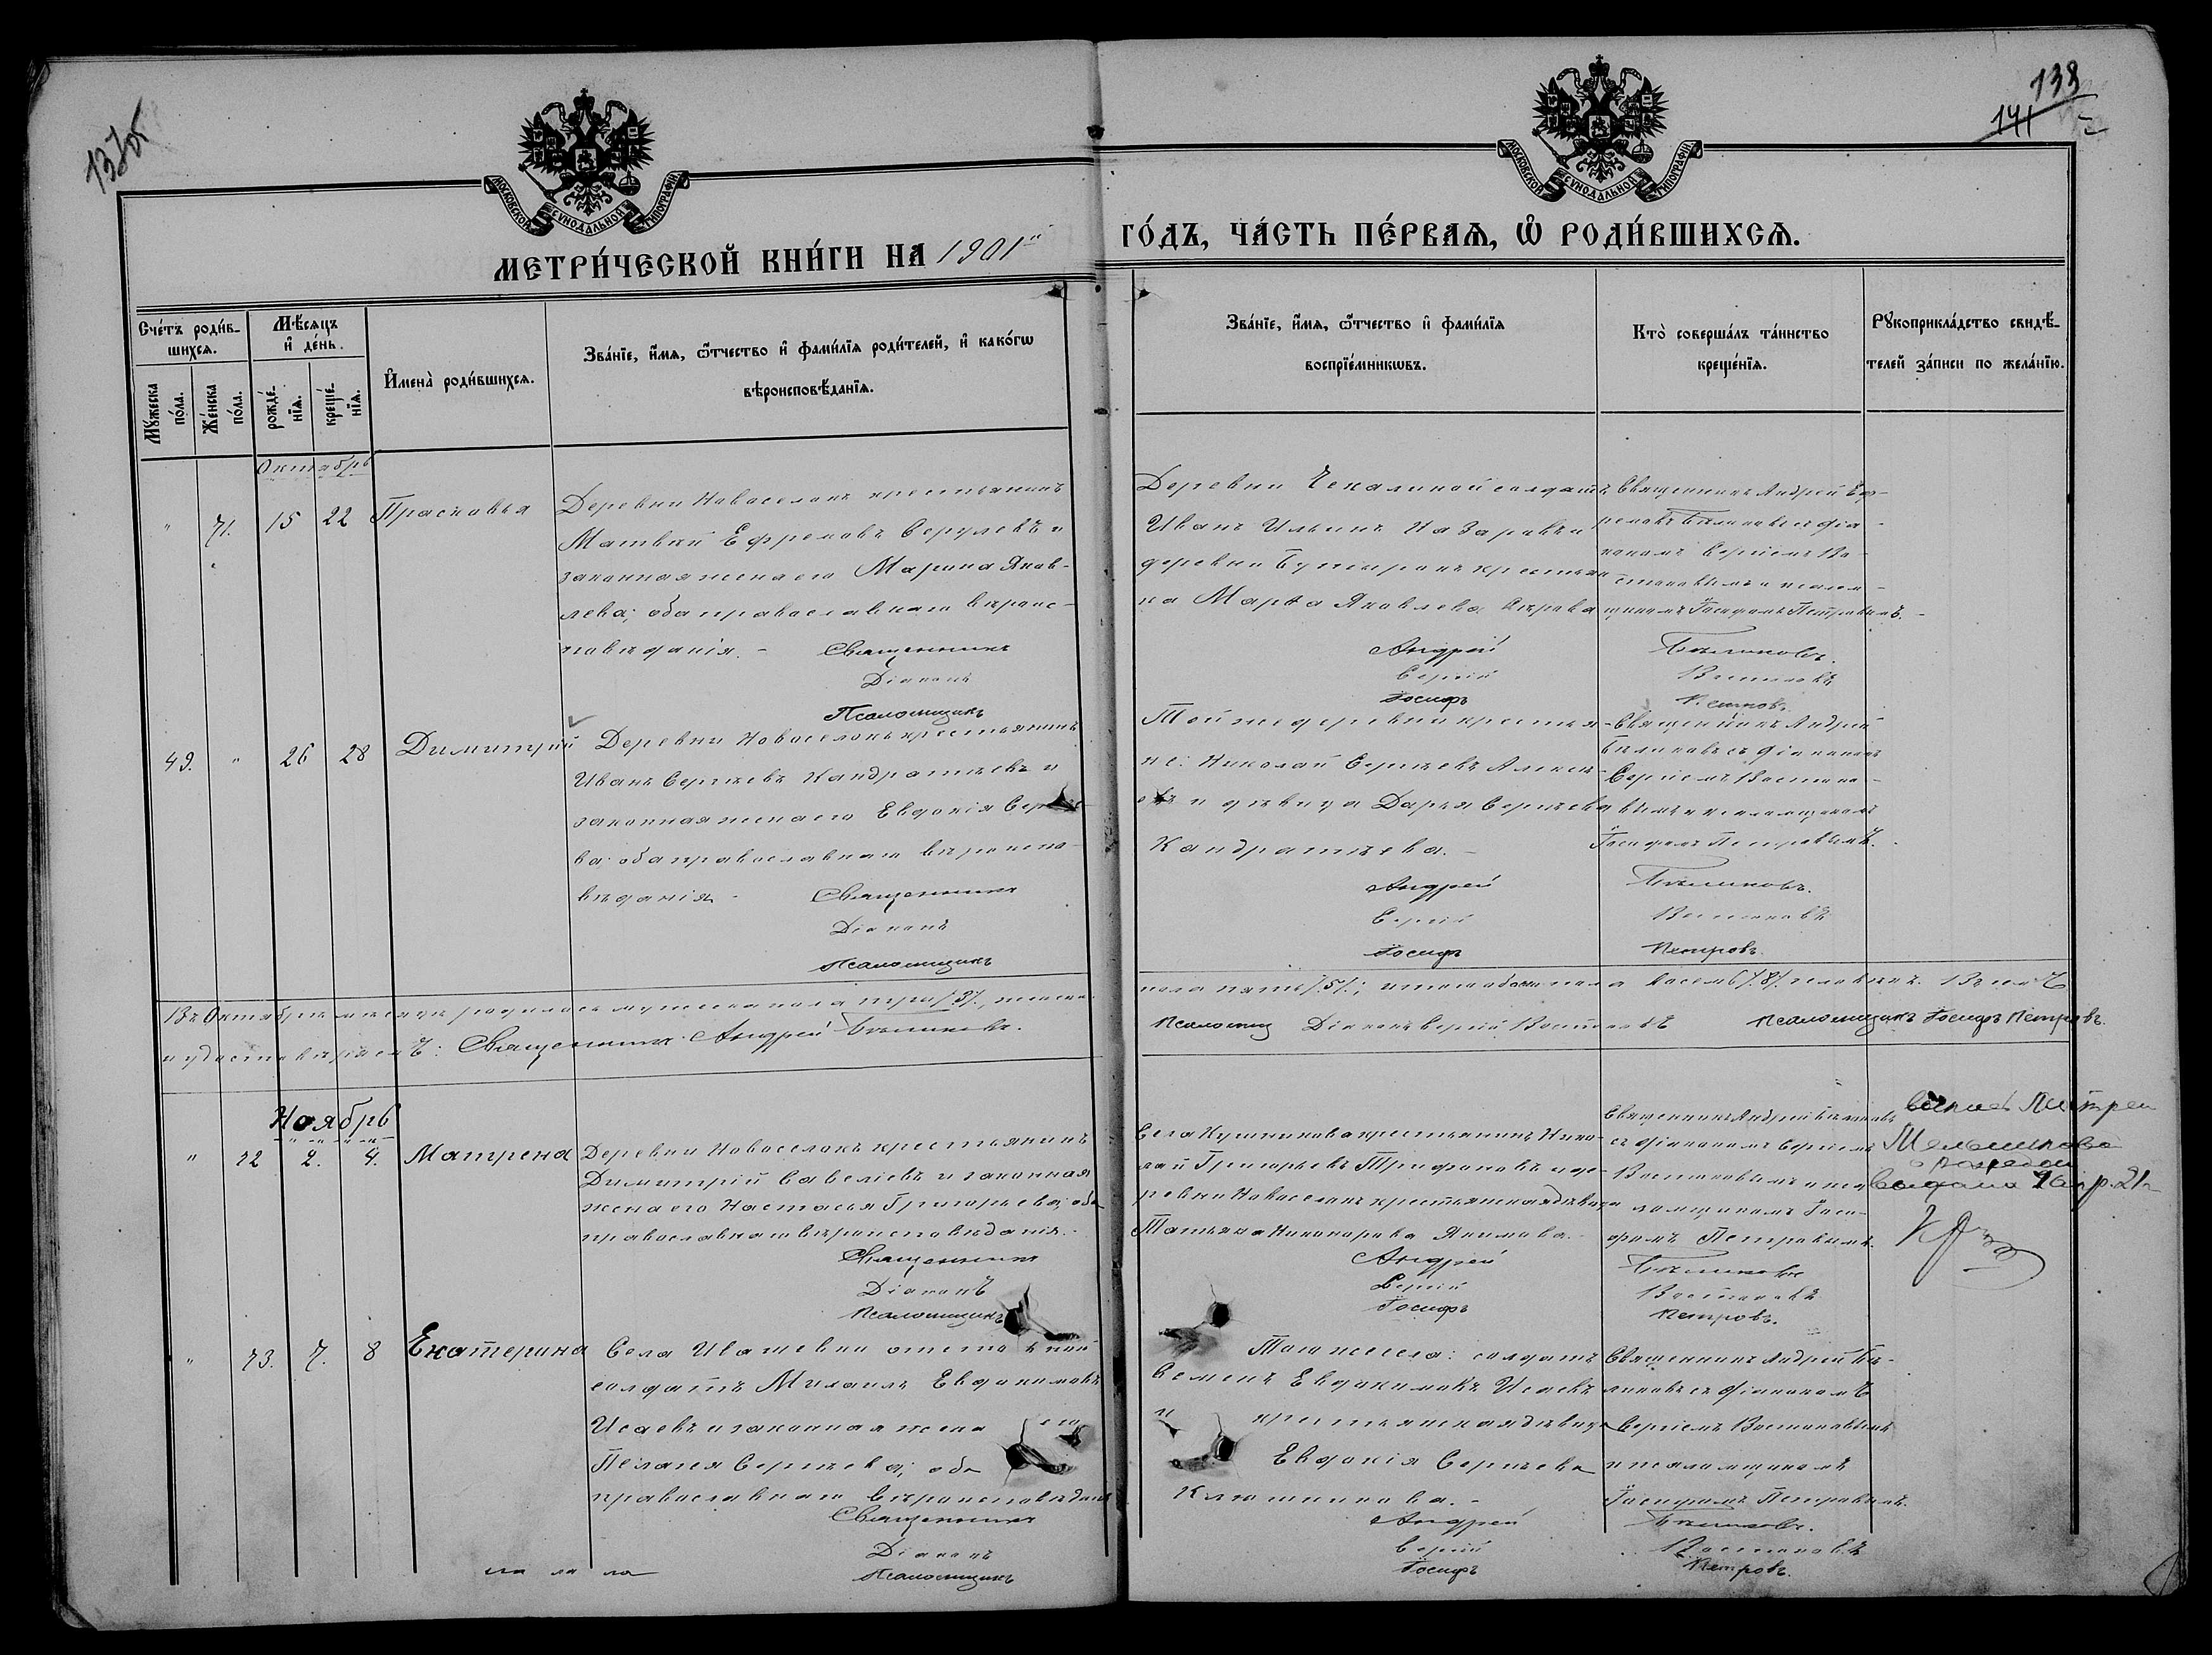 137об
138
141
МОСКОВСКОЙ СУНОДАЛЬНОЙ ТИПОГРАФІИ
МОСКОВСКОЙ СУНОДАЛЬНОЙ ТИПОГРАФІИ
МЕТРИ́ЧЕСКОЙ КНИ́ГИ НА 1901й
ГО́ДЪ, ЧА́СТЬ ПЕ́РВАѦ, Ѡ РОДИ́ВШИХСѦ.
Сче́тъ роди́в-
шихсѧ.
Мѣ́сѧцъ
и де́нь.
Мꙋ́жеска по́ла.
Же́нска по́ла.
рожде́-
нїѧ.
креще́-
нїѧ.
Имена̀ роди́вшихсѧ.
Зва́нїе, и́мѧ, ѻ́тчество и фами́лїѧ роди́телей, и како́гѡ
вѣроисповѣ́данїѧ.
Зва́нїе, и́мѧ, ѻ́тчество и фами́лїѧ
воспрїе́мникѡвъ.
Кто̀ соверша́лъ та́инство
креще́нїѧ.
Рꙋкоприкла́дство свидѣ́-
телей за́писи по жела́нїю.
Октябрь
" 71. 15 22 Прасковья
Деревни Новоселокъ крестьянинъ
Матвѣй Ефремовъ и
законная жена его Марина Яков-
лева; оба православнаго вѣроис-
повѣданія. – Священникъ
Діаконъ
Псаломщикъ
Деревни Чекалиной солдатъ
Иванъ Ильинъ Назаровъ и
деревни крестьян
ка Марѳа Яковлева
Андрей
Сергій
Іосифъ
Священникъ Андрей
Бѣликовъ съ діа-
кономъ Сергіемъ Во-
стоковымъ и псалом-
щикомъ Іосифомъ Петровымъ. –
Бѣликовъ.
Востоковъ
Петровъ.
49. " 26 28 Димитрій
Деревни Новоселокъ крестьянинъ
Иванъ Сергѣевъ Кондратьевъ и
законная жена его Евдокія Сергѣе-
ва; оба православнаго вѣроиспо-
вѣданія – Священникъ
Діаконъ
Псаломщикъ
Той же деревни крестья-
не: Николай Сергѣевъ
и дѣвица Дарья Сергѣева
Кондратьева. –
Андрей
Сергій
Іосифъ
Священникъ Андрей
Бѣликовъ съ діакономъ
Сергіемъ Востоко-
вымъ и псаломщикомъ
Іосифомъ Петровымъ.
Бѣликовъ.
Востоковъ
Петровъ.
Въ Октябрѣ мѣсяцѣ родилось мужеска пола три /3/, женска
пола пять /5/; итого обоего пола восемь /8/ человѣкъ. Въ чемъ
и удостовѣряемъ: Священникъ Андрей Бѣликовъ.
Діаконъ Сергій Востоковъ Псаломщикъ Іосифъ Петровъ.
Ноябрь
" 72 2. 4. Матрена
Деревни Новоселокъ крестьянинъ
Димитрій Савеліевъ и законная
жена его Настасья Григорьева; оба
православнаго вѣроисповѣданія. –
Священникъ
Діаконъ
Псаломщикъ
Села Кушникова крестьянинъ Нико-
лай Григорьевъ Трифоновъ и де-
ревни Новоселокъ крестьянская дѣвица
Татьяна Никонорова Якимова. –
Андрей
Сергій
Іосифъ
Священникъ Андрей Бѣликовъ
съ діакономъ Сергіемъ
Востоковымъ и пса
ломщикомъ Іоси-
фомъ Петровымъ.
Бѣликовъ
Востоковъ
Петровъ.
" 73. 7. 8 Екатерина
Села Ивашевки отставной
солдатъ Михаилъ Евдокимовъ
Исаевъ и законная жена его
Пелагея Сергѣева; оба
православнаго вѣроисповѣданія
Священникъ
Діаконъ
Псаломщикъ
Того же села: солдатъ
Семенъ Евдокимовъ Исаевъ
и крестьянская дѣвица
Евдокія Сергѣева
Ключникова. –
Андрей
Сергій
Іосифъ
Священникъ Андрей Бѣ-
ликовъ съ діакономъ
Сергіемъ Востоковымъ
и псаломщикомъ
Іосифомъ Петровымъ.
Бѣликовъ.
Востоковъ
Петровъ.